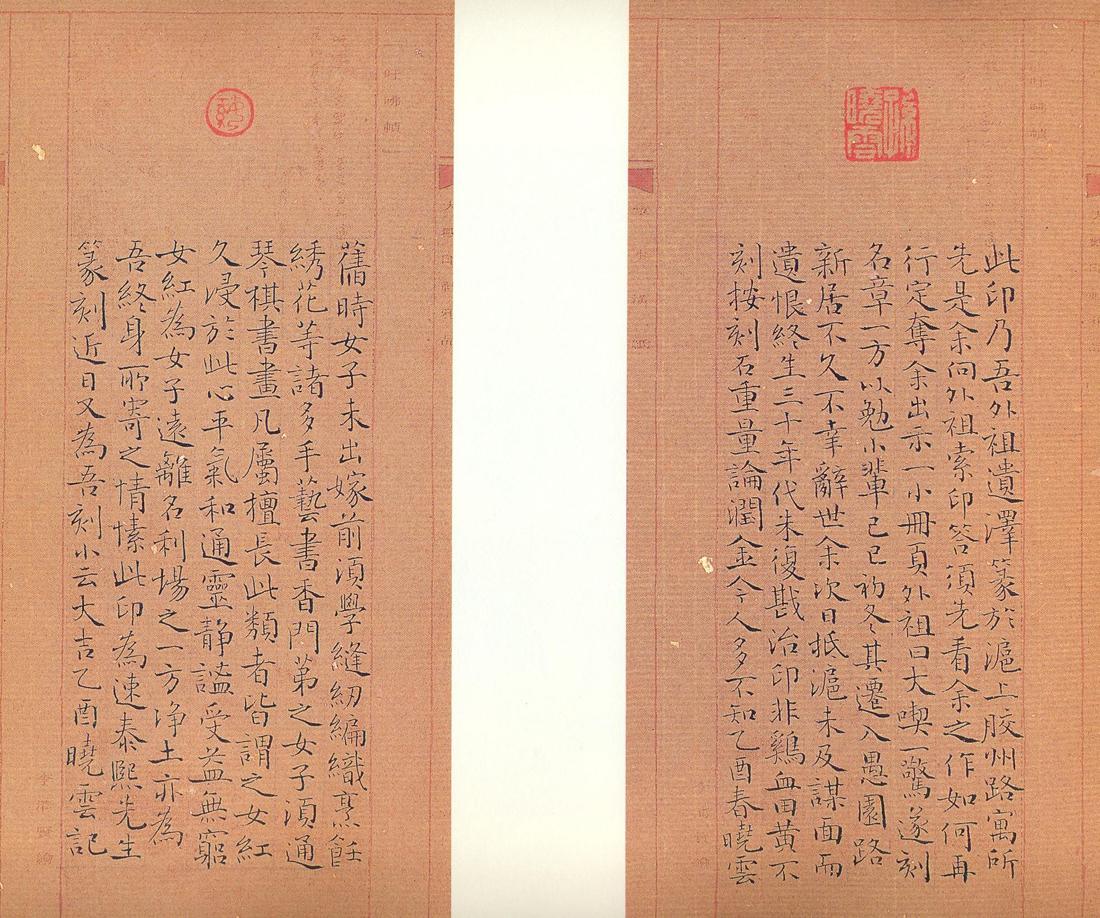 此印乃吾外祖遺澤篆於滬上胶州路寓所
先是余向外祖索印答須先看余之作如何再
行定奪余出示一小冊頁外祖曰大喫一驚遂刻
名章一方以勉小輩己巳初冬其遷入愚園路
新居不久不幸辭世余次日抵滬未及謀面而
遺恨終生三十年代朱復戡治印非鷄血田黃不
刻按刻石重量論潤金今人多不知乙酉春曉雲
舊時女子未出嫁前須學縫紉編織烹飪
綉花等諸多手藝書香門第之女子須通
琴棋書畫凡屬檀長此類者皆謂之女紅
久浸於此心平氣和通靈静謐受益無窮
女紅為女子遠離名利場之一方净土亦為
吾終身所寄之情愫此印為速泰熙先生
篆刻近日又為吾刻小云大吉乙酉曉雲記